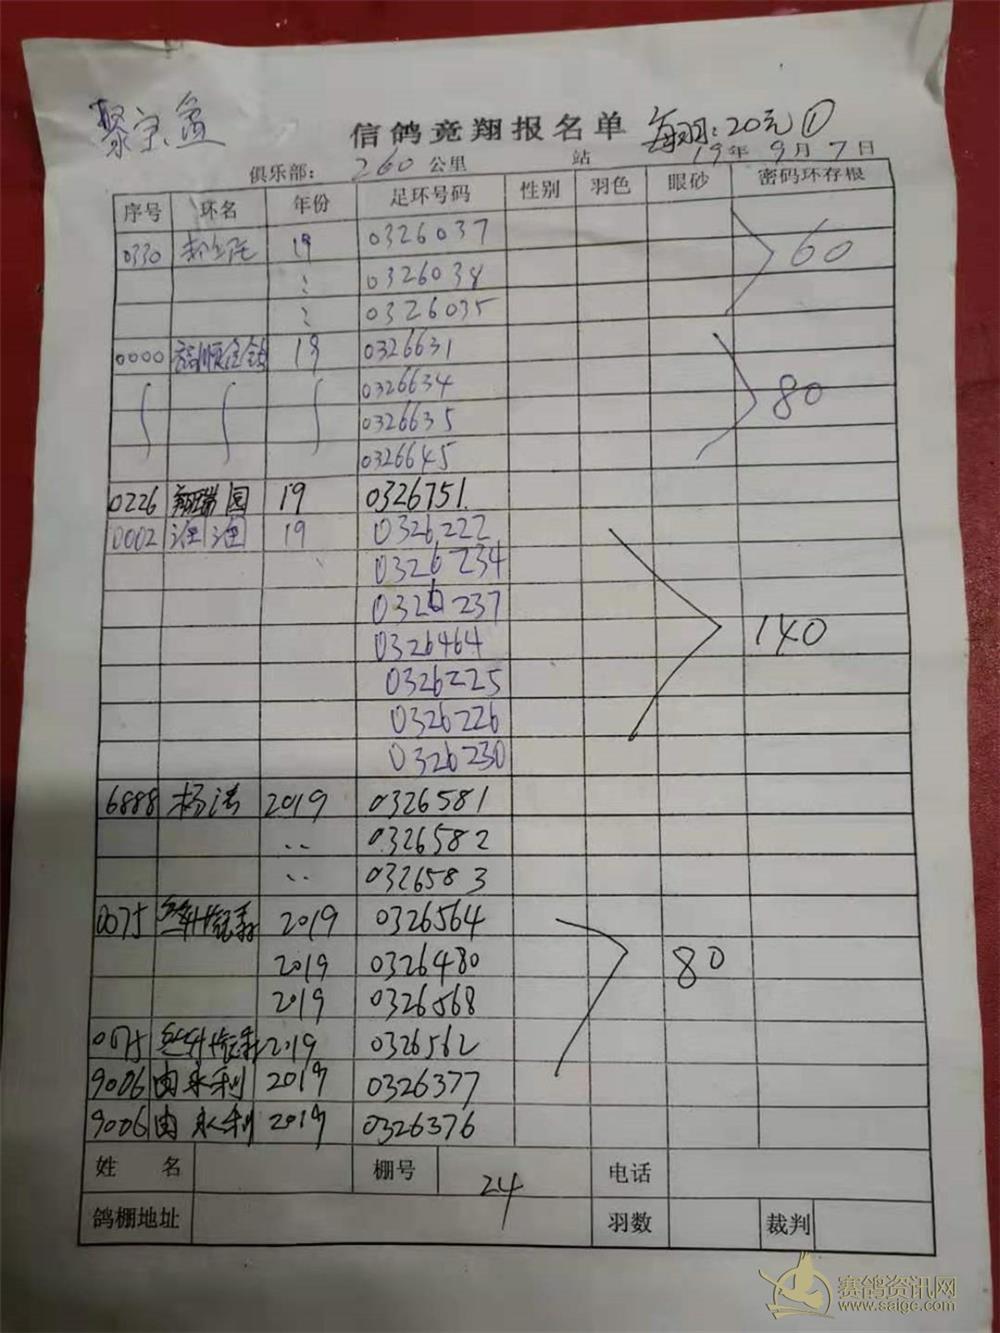 聚宝盆
信鸽竞翔报名单 每羽:20元 ①
俱乐部: 260公里 站 19年9月7日
序号 环名 年份 足环号码 性别 羽色 眼砂 密码环存根
0330 19 0326037
0326034 60
0326035
0000 19 0326631
0326634
0326635 80
0326645
0226 翔瑞园 19 0326751.
0002 19 0326222
0326234
0326237
0326464 140
0326225
0326226
0326230
6888 杨涛 2019 0326581
0326582
0326583
0075 2019 0326564
2019 0326480 80
2019 0326568
0075 2019 0326562
9006 由永利 2019 0326377
9006 由永利 2019 0326376
姓名 棚号 24 电话
鸽棚地址 羽数 裁判
赛鸽资讯网
www.saigc.com